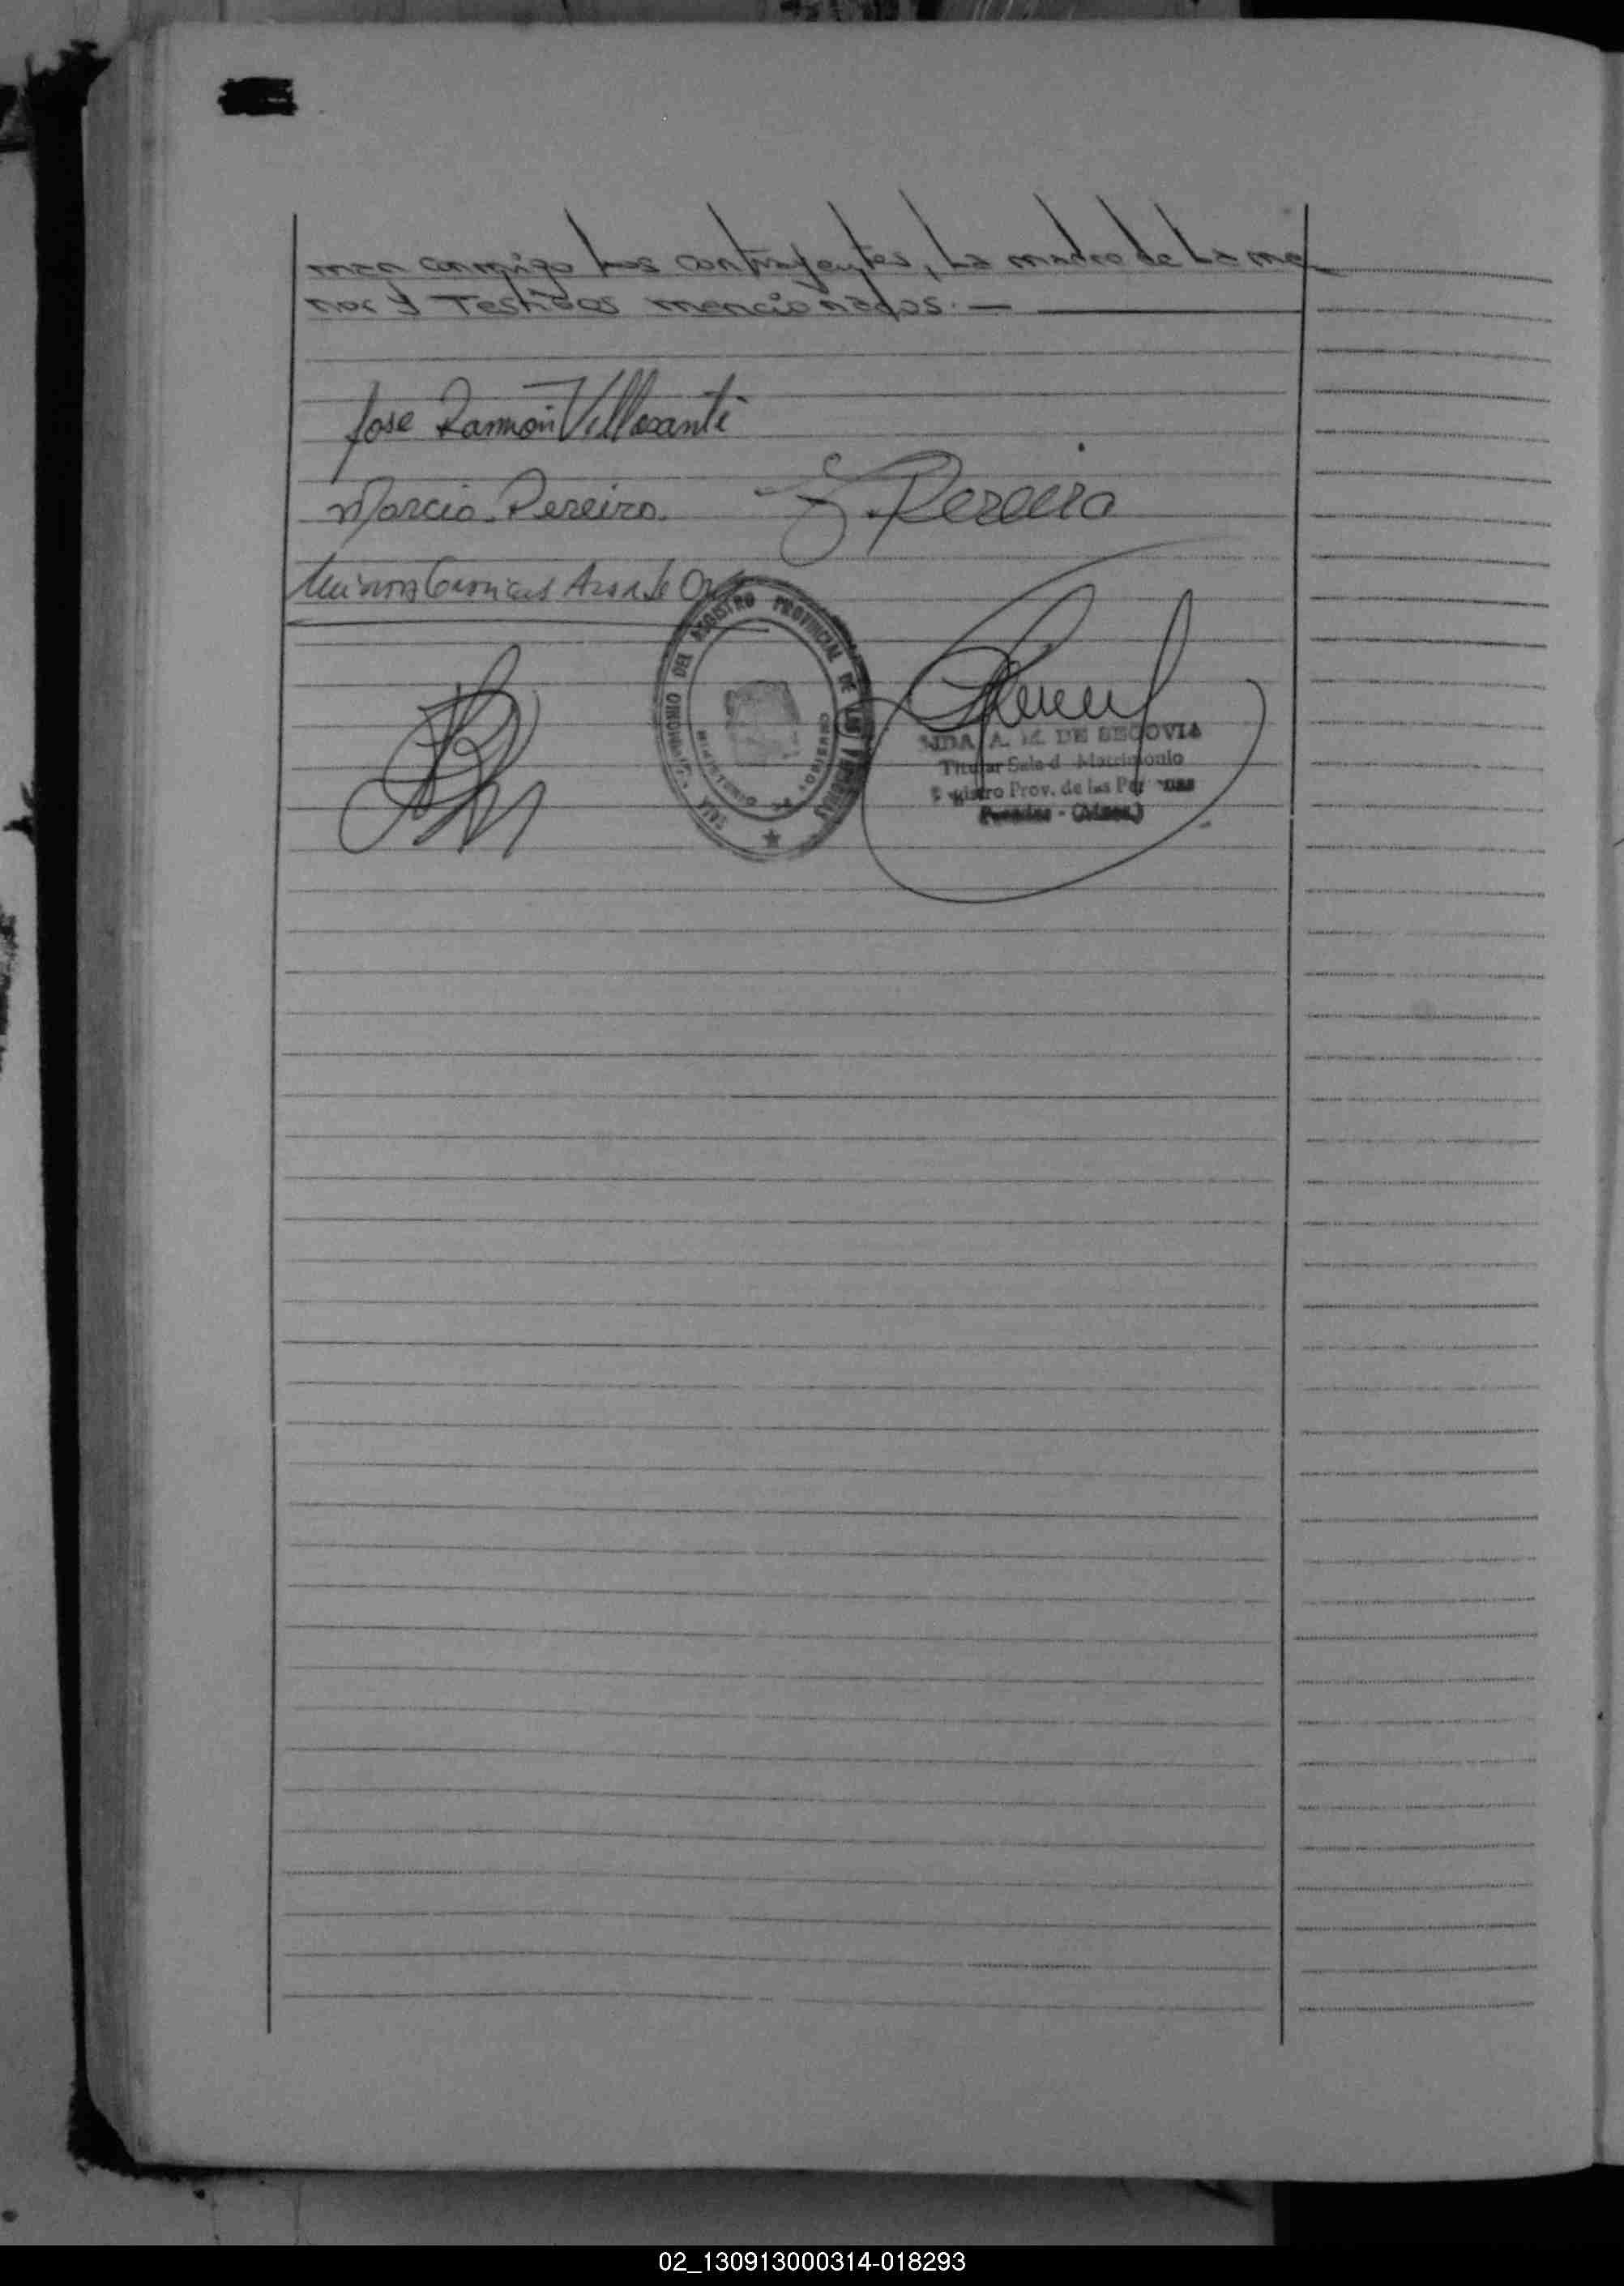 man conmigo los contrayentes, La madre de La me-
nor y Testigos mencionados.—
Jose Ramón Villasanti
Marcia Pereira.
Pereira
SALA MATRIMONIO DEL REGISTRO PROVINCIAL DE LAS PERSONAS
MINISTERIO DE GOBIERNO
A. M. DE SEGOVIA
Titular Sala d Matrimonio
Registro Prov. de las Personas
Posadas - (Mnes.)
02_130913000314-018293